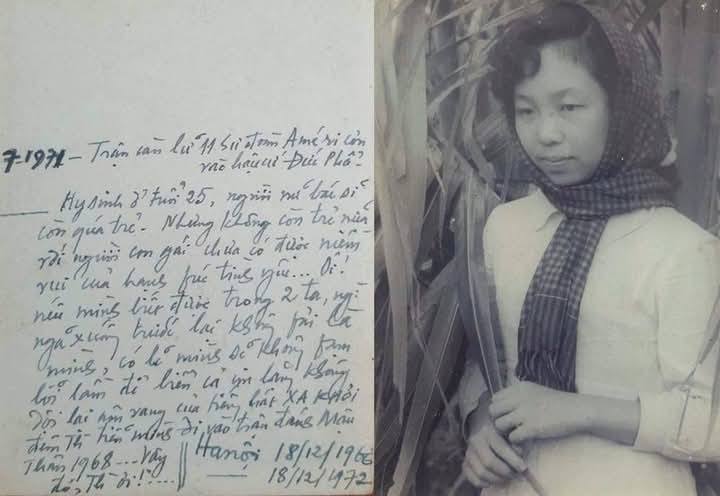 7-1971 – Trận càn lữ 11 sư đoàn Américn
vào hậu cứ Đức Phổ.
Hy sinh ở tuổi 25, người nữ bác sĩ
còn quá trẻ. Nhưng không còn trẻ nữa
với người con gái chưa có được niềm
vui của hạnh fúc tình yêu... Ôi!
nếu mình biết được trong 2 ta, ng
ngã xuống trước lại không fải là
mình, có lẽ mình sẽ không fạm
lỗi lầm để biển cả im lặng không
dội lại âm vang của tiếng hát XA KHƠI
đêm Th tiễn mình đi vào trận đánh Mậu
Thân 1968... Vậy
đó, Th ơi!...
Hanội 18/12/1966
18/12/1972